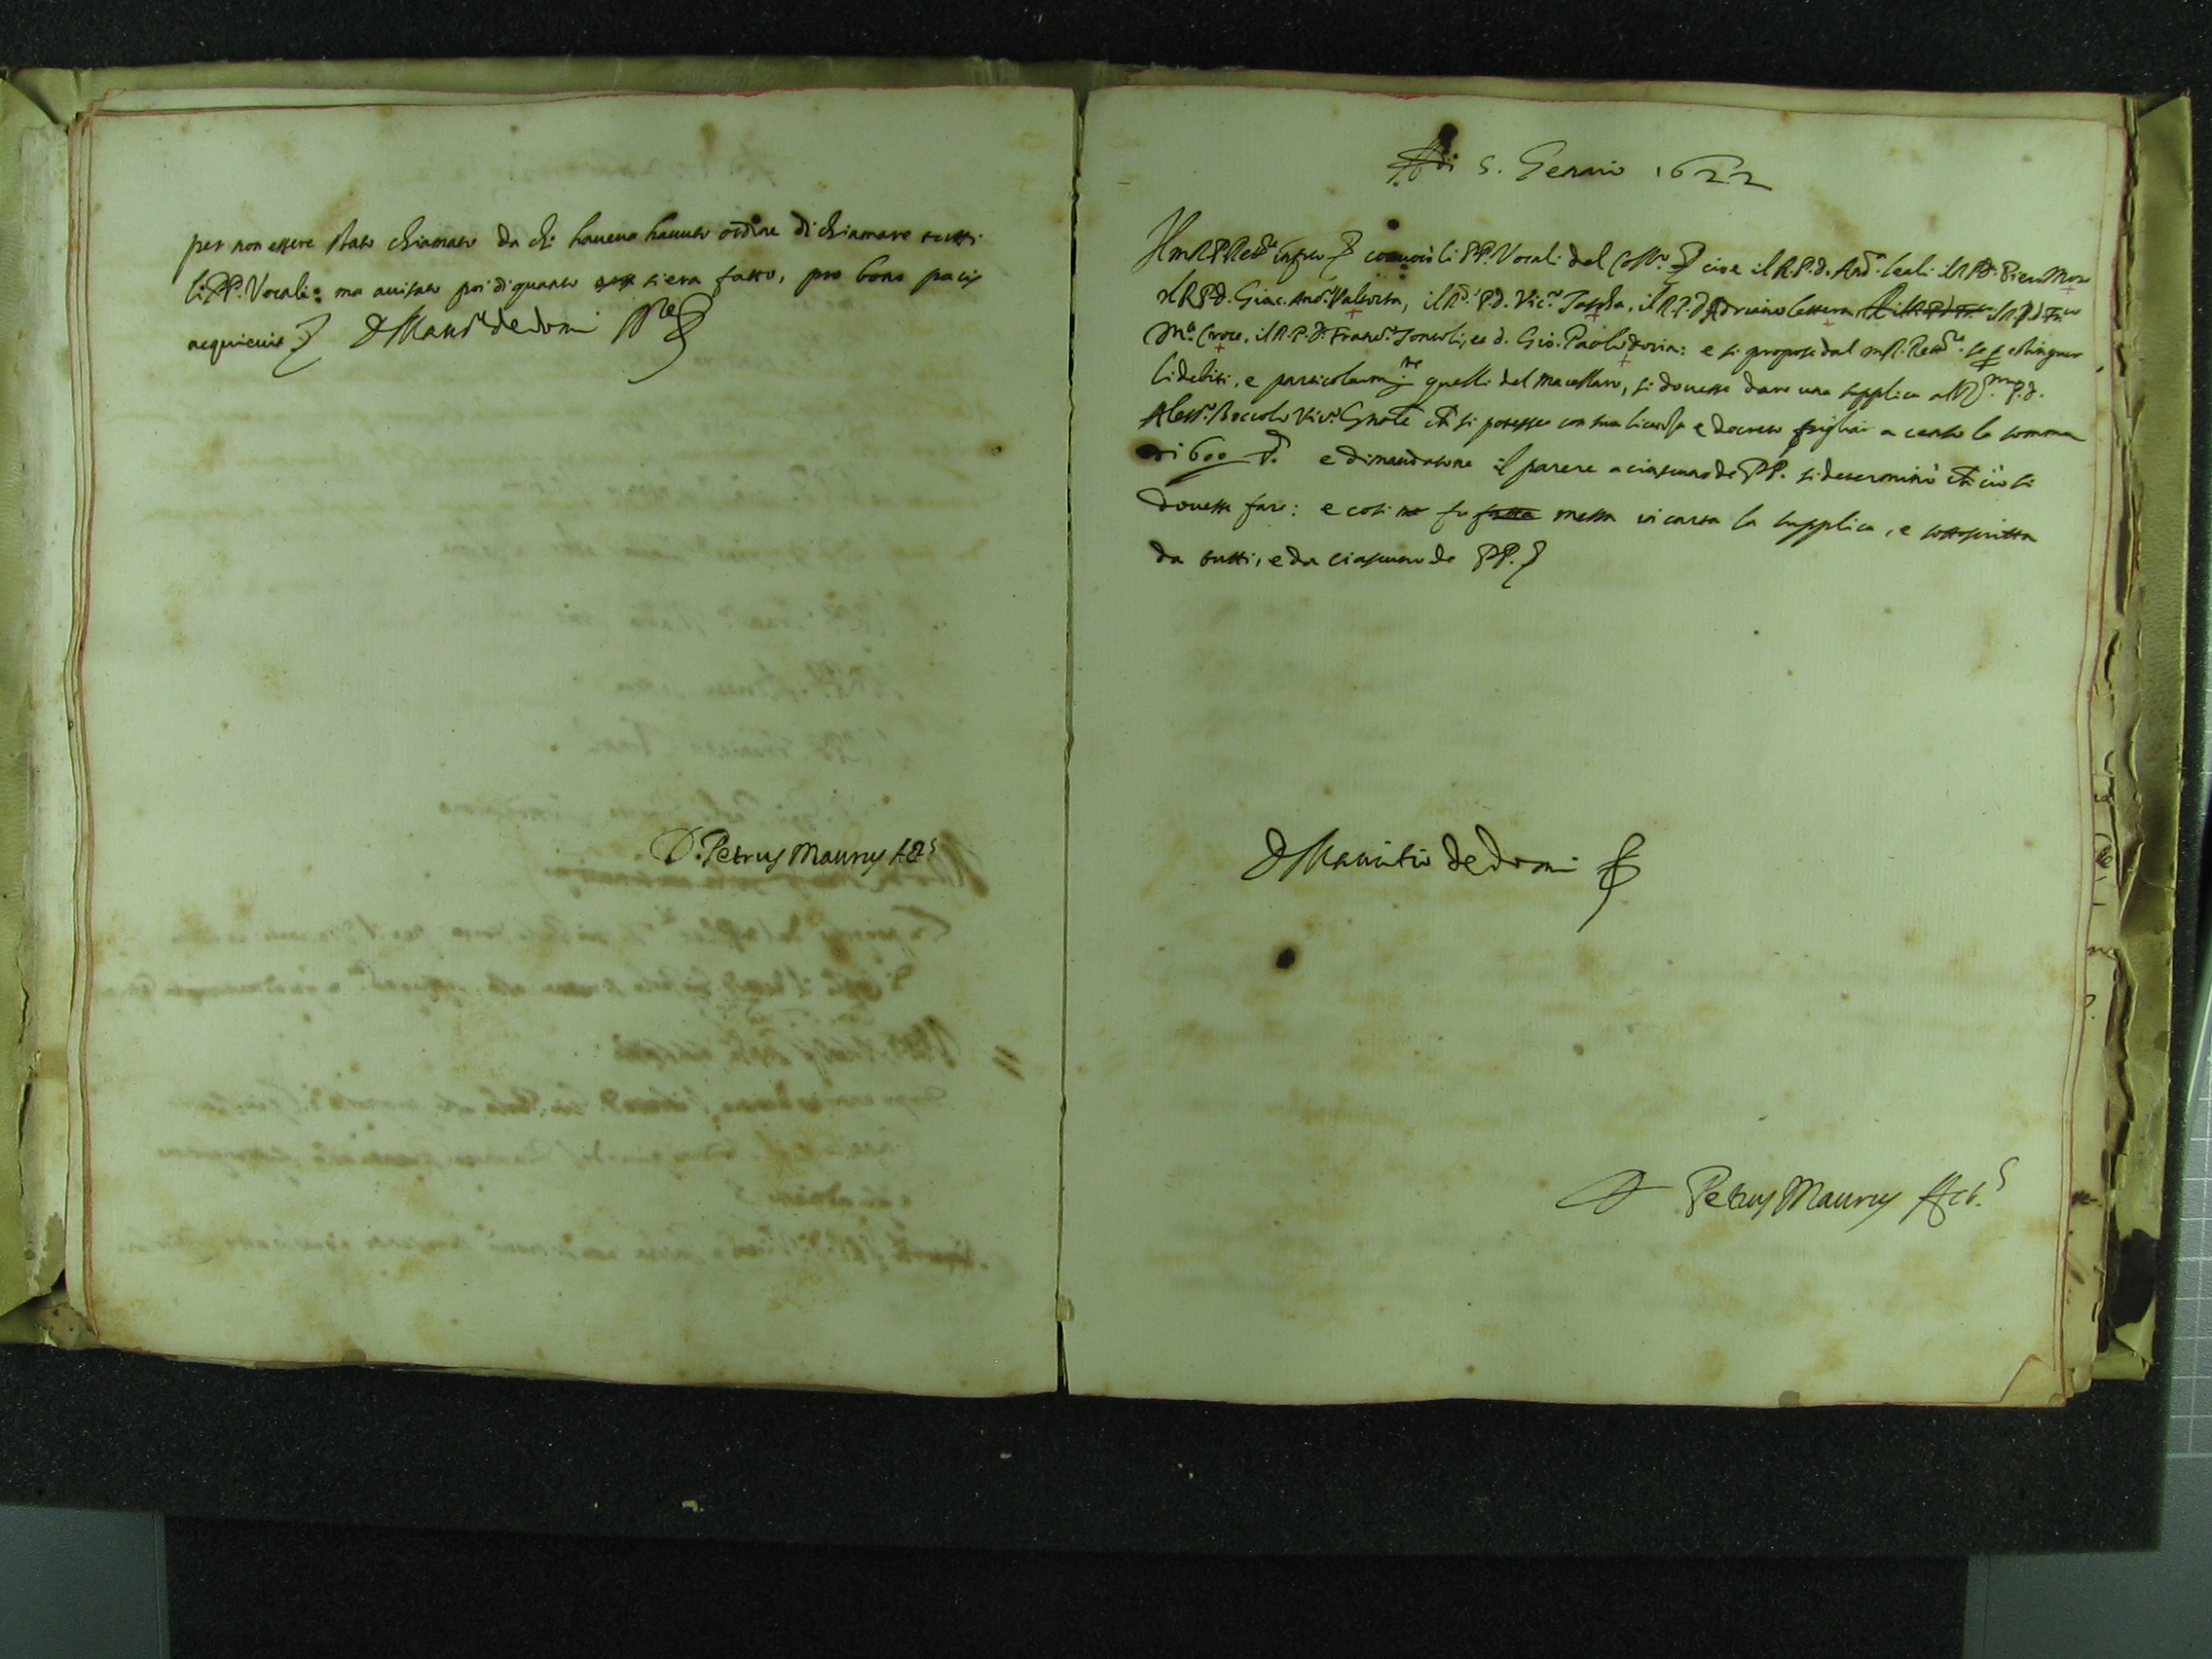 per non essere stato chiamato da chi haveva havuto ordine di chiamare tutti
li PP. Vocali: ma avisato poi di quanto si era fatto, pro bono pacis
acquievit D Maur.o de domi
D. Petrus Maurus
Adi 5. Genaro 1622
Il m R P Rett.re convocò li PP. Vocali del Coll.o cioè il R. P. d. And.a Leali il R P d. Pietro
il R P d. Giac. Ant.o Valtorta, il R.do P. d. Vic.o il R. P. d Adriano
M.a Croce, il R. P. d. Franc.o et d. Gio. Paolo Doria: e si propose dal m R. Rett.re se p estinguer
li debiti, e particolarm.te quelli del macellaro, si dovesse dare una supplica al R.mo P. d.
Aless.o Boccolo Vic.o Gnãle ch si potesse con sua licenza e decreto pigliar a censo la somma
di 600 e dimandatone il parere a ciascuno de PP. si determinò ch ciò si
dovesse fare: e così fu fatta messa in carta la supplica, e sottoscritta
da tutti, e da ciascuno de PP.
D Mauritio de domi
D Petrus Maurus Act.s